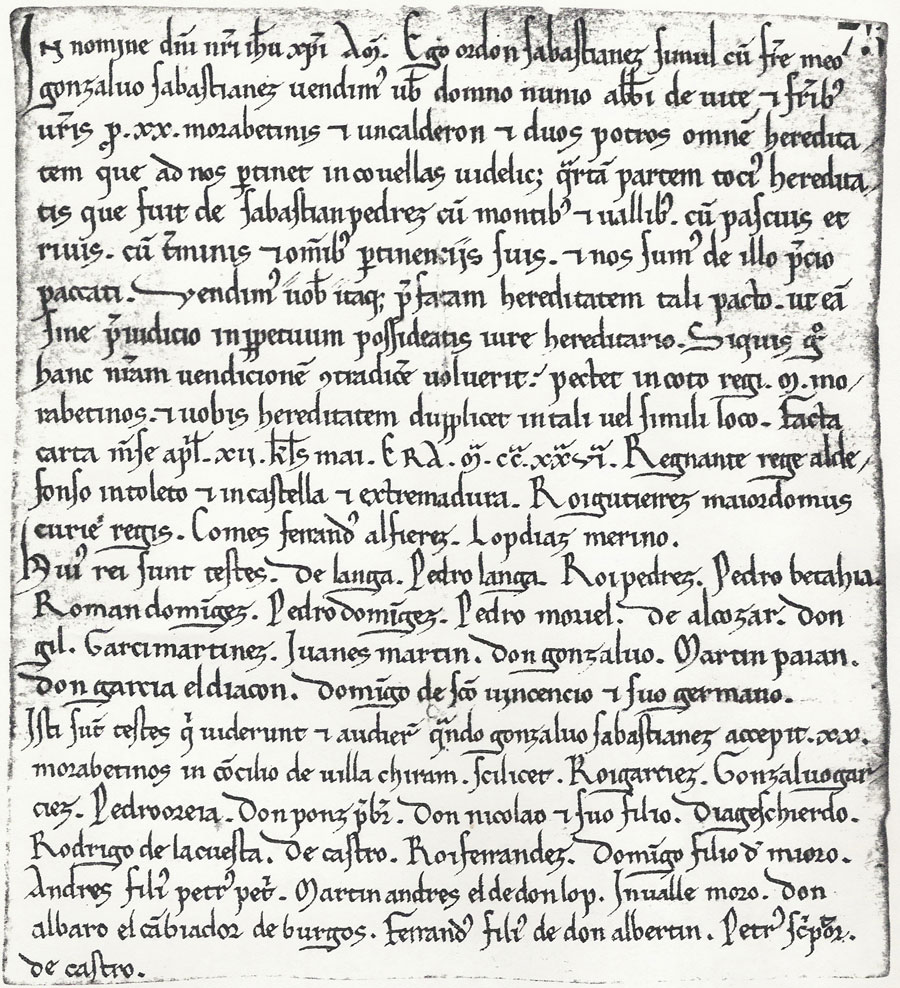 In nomine dñi nr̃i ihũ xpĩ Am̃. Ego ordon sabastianez simul cũ fr̃e meo
gonzaluo sabastianez uendim⁹ uob̃ domno nunio abb̃i de uite ⁊ fr̃ib⁹
ur̃is ꝑ .xx. morabetinis ⁊ uncalderon ⁊ duos potros omnẽ heredita
tem que ad nos ꝑtinet incouellas uidelicꝫ q̃rtã partem toci⁹ heredita
tis que fuit de sabastian pedrez cũ montib⁹ ⁊ uallib⁹. cũ pascuis et
riuis. cũ t̃minis ⁊ om̃ib⁹ ꝑtinencijs suis. ⁊ nos sum⁹ de illo p̃cio
paccati. Vendim⁹ uob̃ itaqꝫ p̃fatam hereditatem tali pacto. ut eã
sine p̃iudicio inꝑpetuum possideatis iure hereditario. Siquis g̊
hanc nr̃am uendicionẽ ꝯtradic̃e uoluerit. pectet incoto regi. m̃. mo
rabetinos. ⁊ uobis hereditatem dupplicet intali uel simili loco. Facta
carta m̃se apl̃. xii. kl̃s mai. ERA. m̃. cc̃. xx̃ Regnante rege alde
fonso intoleto ⁊ incastella ⁊ extremadura. Roigutierrez maiordomus
curie regis. Comes ferrand⁹ alfierez. Lopdiaz merino.
Hui⁹ rei sunt testes. De langa. Pedro langa. Roipedrez. Pedro betahia.
Roman domĩgez. Pedro domĩgez. Pedro mouel. De alcozar. Don
gil. Garcimartinez. Juanes martin. Don gonzaluo. Martin paian.
Don garcia eldiacon. Domĩgo de sc̃o uincencio ⁊ suo germano.
Isti sũt testes q̃ uiderunt ⁊ audier̃ q̃ndo gonzaluo sabastianez accepit .xx.
morabetinos in cõcilio de uilla chiram. scilicet. Roigarciez. Gonzaluo gar
ciez. Pedro oreia. Don ponz p̃br̃. Don nicolao ⁊ suo filio. Diageschierdo.
Rodrigo de lacuesta. De castro. Roiferrandez. Domĩgo filio d̃ muoro.
Andres fili⁹ petr⁹ pet̃. Martin andres eldedonlop. Inualle moro. Don
albaro el cãbiador de burgos. Ferrand⁹ fili⁹ de don albertin. Petr⁹ sc̃ptor.
de castro.